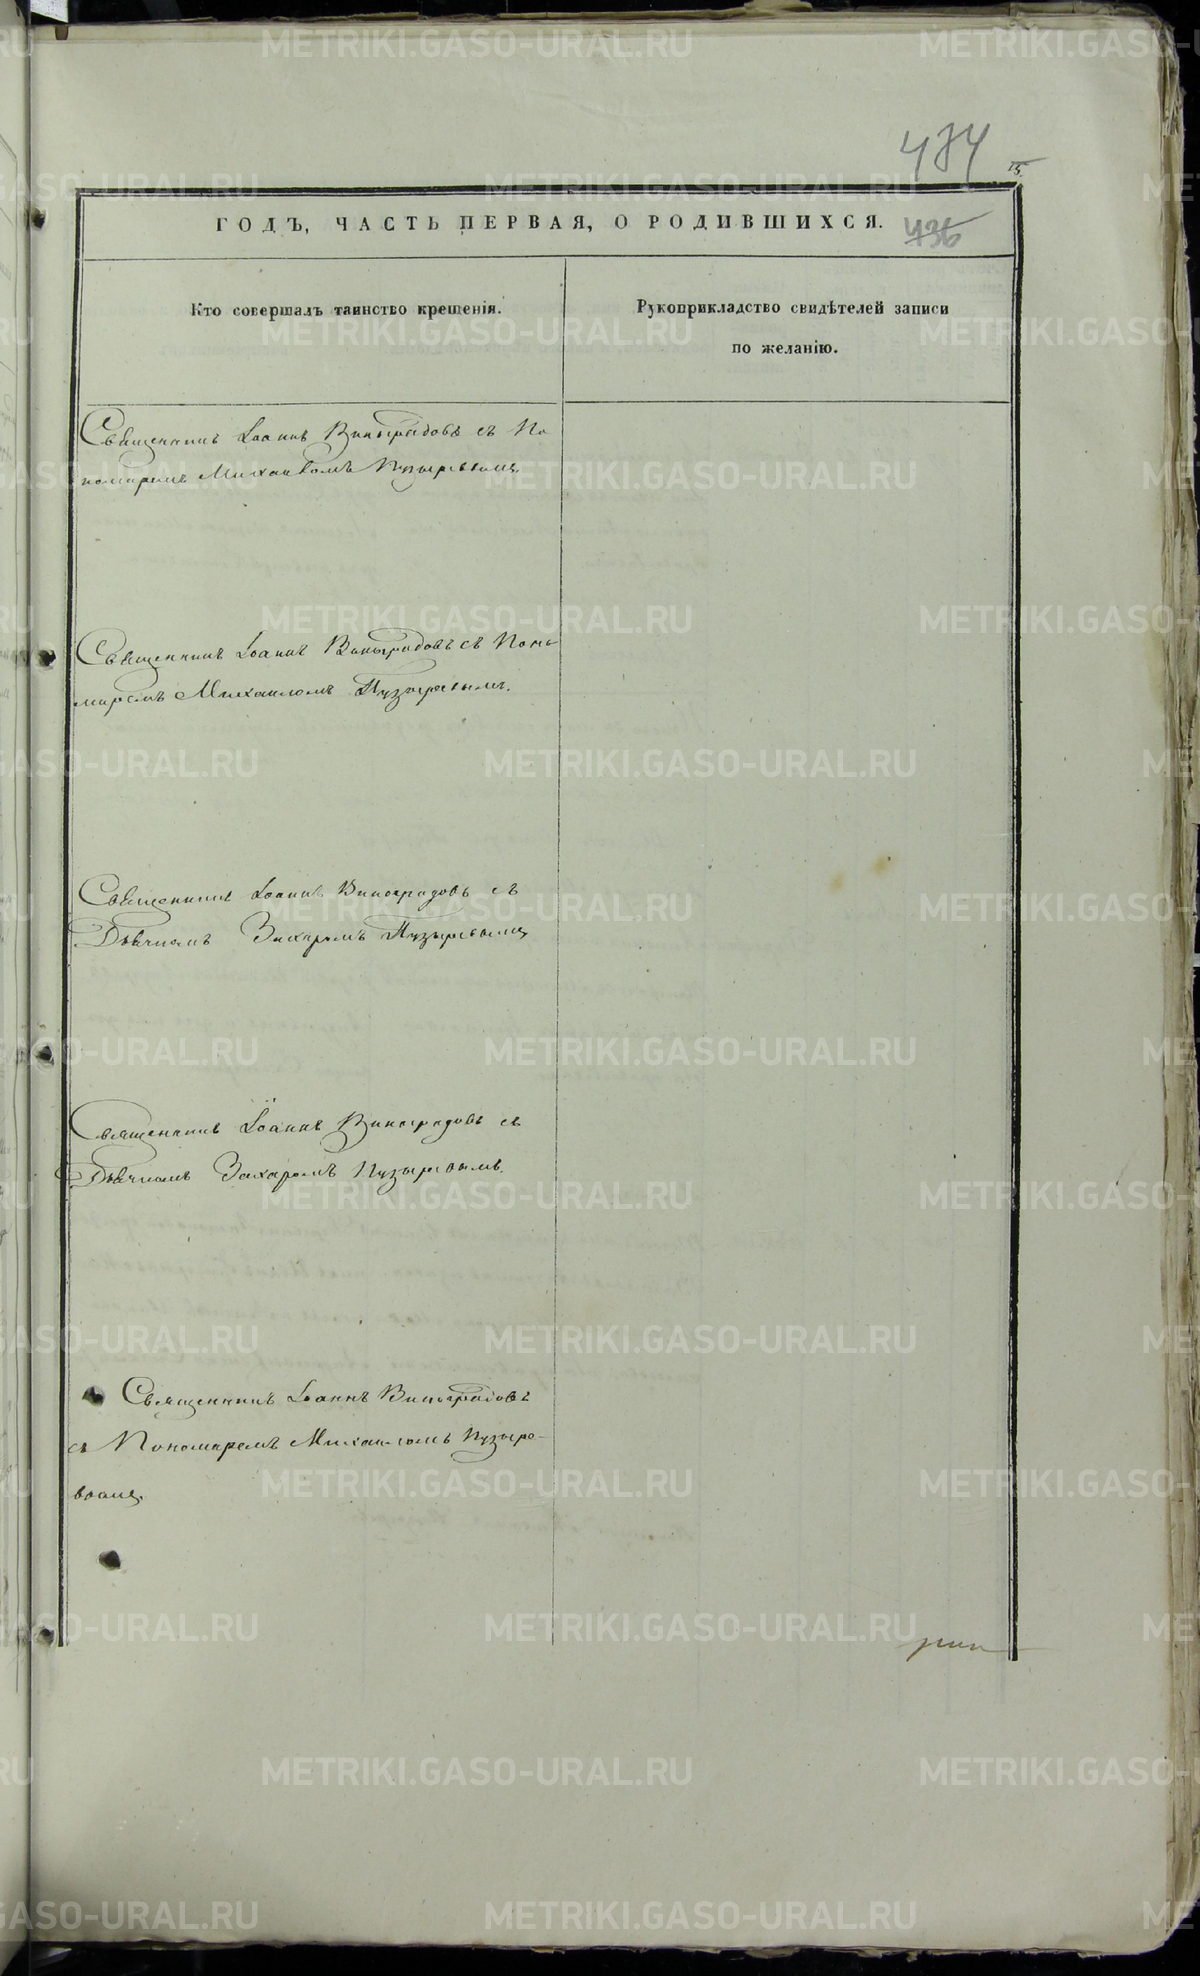 484
15.
ГОДЪ, ЧАСТЬ ПЕРВАЯ, О РОДИВШИХСЯ. 436
Кто совершалъ таинство крещенія.
Рукоприкладство свидѣтелей записи
по желанію.
Священникъ Іоаннъ Виноградовъ съ По
номаремъ Михаиломъ Пузыревымъ.
Священникъ Іоаннъ Виноградовъ съ Поно-
маремъ Михаиломъ Пузыревымъ.
Священникъ Іоаннъ Виноградовъ съ
Дьячкомъ Захаромъ Пузыревымъ
Священникъ Іоаннъ Виноградовъ съ
Дьячкомъ Захаромъ Пузыревымъ.
Священникъ Іоаннъ Виноградовъ
съ Пономаремъ Михаиломъ Пузыре-
вымъ.
METRIKI.GASO-URAL.RU